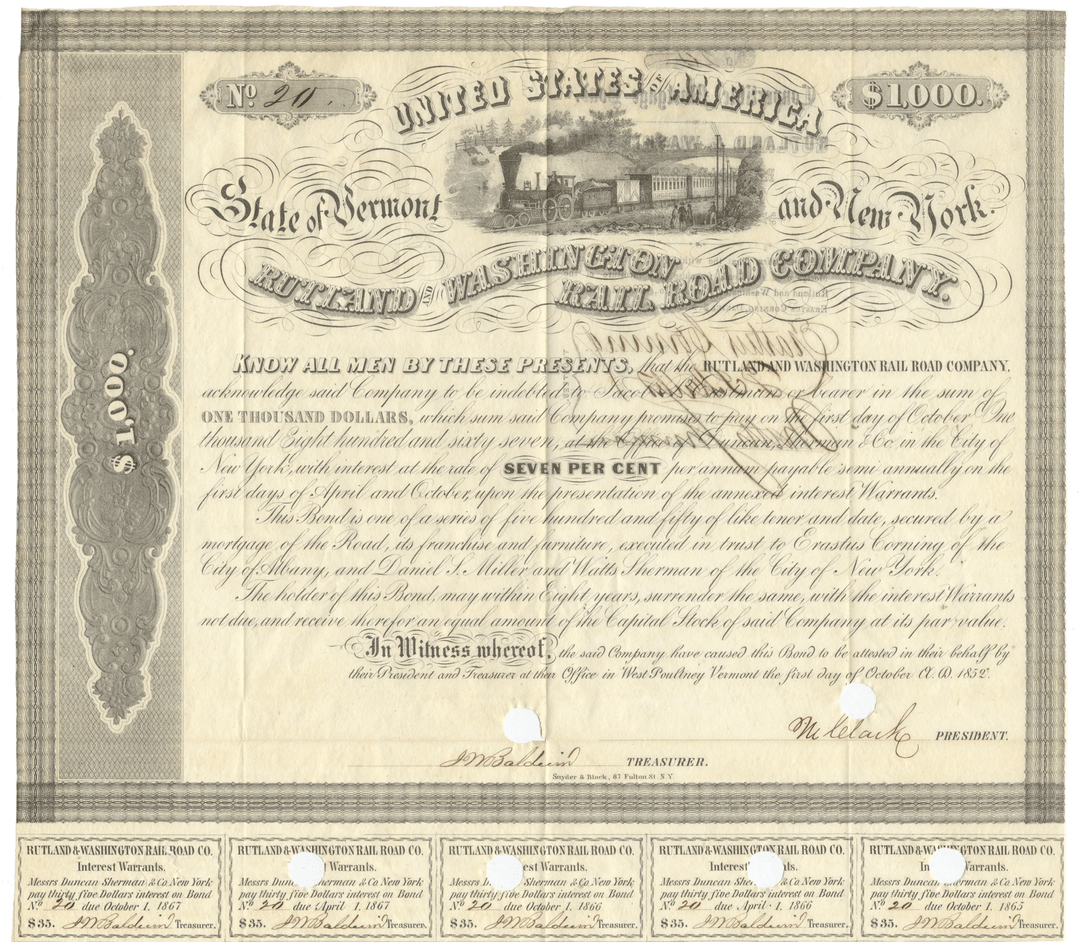 Nº 20
$1,000.
UNITED STATES OF AMERICA
State of Vermont and New York.
RUTLAND AND WASHINGTON
RAIL ROAD COMPANY.
$1,000.
KNOW ALL MEN BY THESE PRESENTS, that the RUTLAND AND WASHINGTON RAIL ROAD COMPANY,
acknowledge said Company to be indebted to Jacob or bearer in the sum of
ONE THOUSAND DOLLARS, which sum said Company promise to pay on the first day of October One
thousand Eight hundred and sixty seven, at Duncan, Sherman & Co. in the City of
New York, with interest at the rate of SEVEN PER CENT per annum payable semi annually on the
first days of April and October, upon the presentation of the annexed interest Warrants.
This Bond is one of a series of five hundred and fifty of like tenor and date, secured by a
mortgage of the Road, its franchise and furniture, executed in trust to Erastus Corning of the
City of Albany, and Daniel S. Miller and Watts Sherman of the City of New York.
The holder of this Bond, may within Eight years, surrender the same, with the interest Warrants
not due, and receive therefor an equal amount of the Capital Stock of said Company at its par value.
In Witness whereof, the said Company have caused this Bond to be attested in their behalf by
their President and Treasurer at their Office in West Poultney Vermont the first day of October A. D. 1852.
M Clark PRESIDENT.
J W Baldwin TREASURER.
Snyder & Black, 87 Fulton St. N.Y.
RUTLAND & WASHINGTON RAIL ROAD CO.
Interest Warrants.
Messrs Duncan Sherman & Co. New York
pay thirty five Dollars interest on Bond
Nº 20 due October 1. 1867
$35. J W Baldwin Treasurer.
RUTLAND & WASHINGTON RAIL ROAD CO.
Warrants.
Messrs Dun herman & Co. New York
pay thirty five Dollars interest on Bond
Nº 20 due April 1. 1867
$35. J W Baldwin Treasurer.
RUTLAND & WASHINGTON RAIL ROAD CO.
Interest Warrants.
Messrs Duncan Sherman & Co. New York
pay thirty five Dollars interest on Bond
Nº 20 due October 1. 1866
$35. J W Baldwin Treasurer.
RUTLAND & WASHINGTON RAIL ROAD CO.
Interest Warrants.
Messrs Duncan Sherman & Co. New York
pay thirty five Dollars interest on Bond
Nº 20 due April 1. 1866
$35. J W Baldwin Treasurer.
RUTLAND & WASHINGTON RAIL ROAD CO.
Warrants.
Messrs Duncan Sherman & Co. New York
pay thirty five Dollars interest on Bond
Nº 20 due October 1. 1865
$35. J W Baldwin Treasurer.